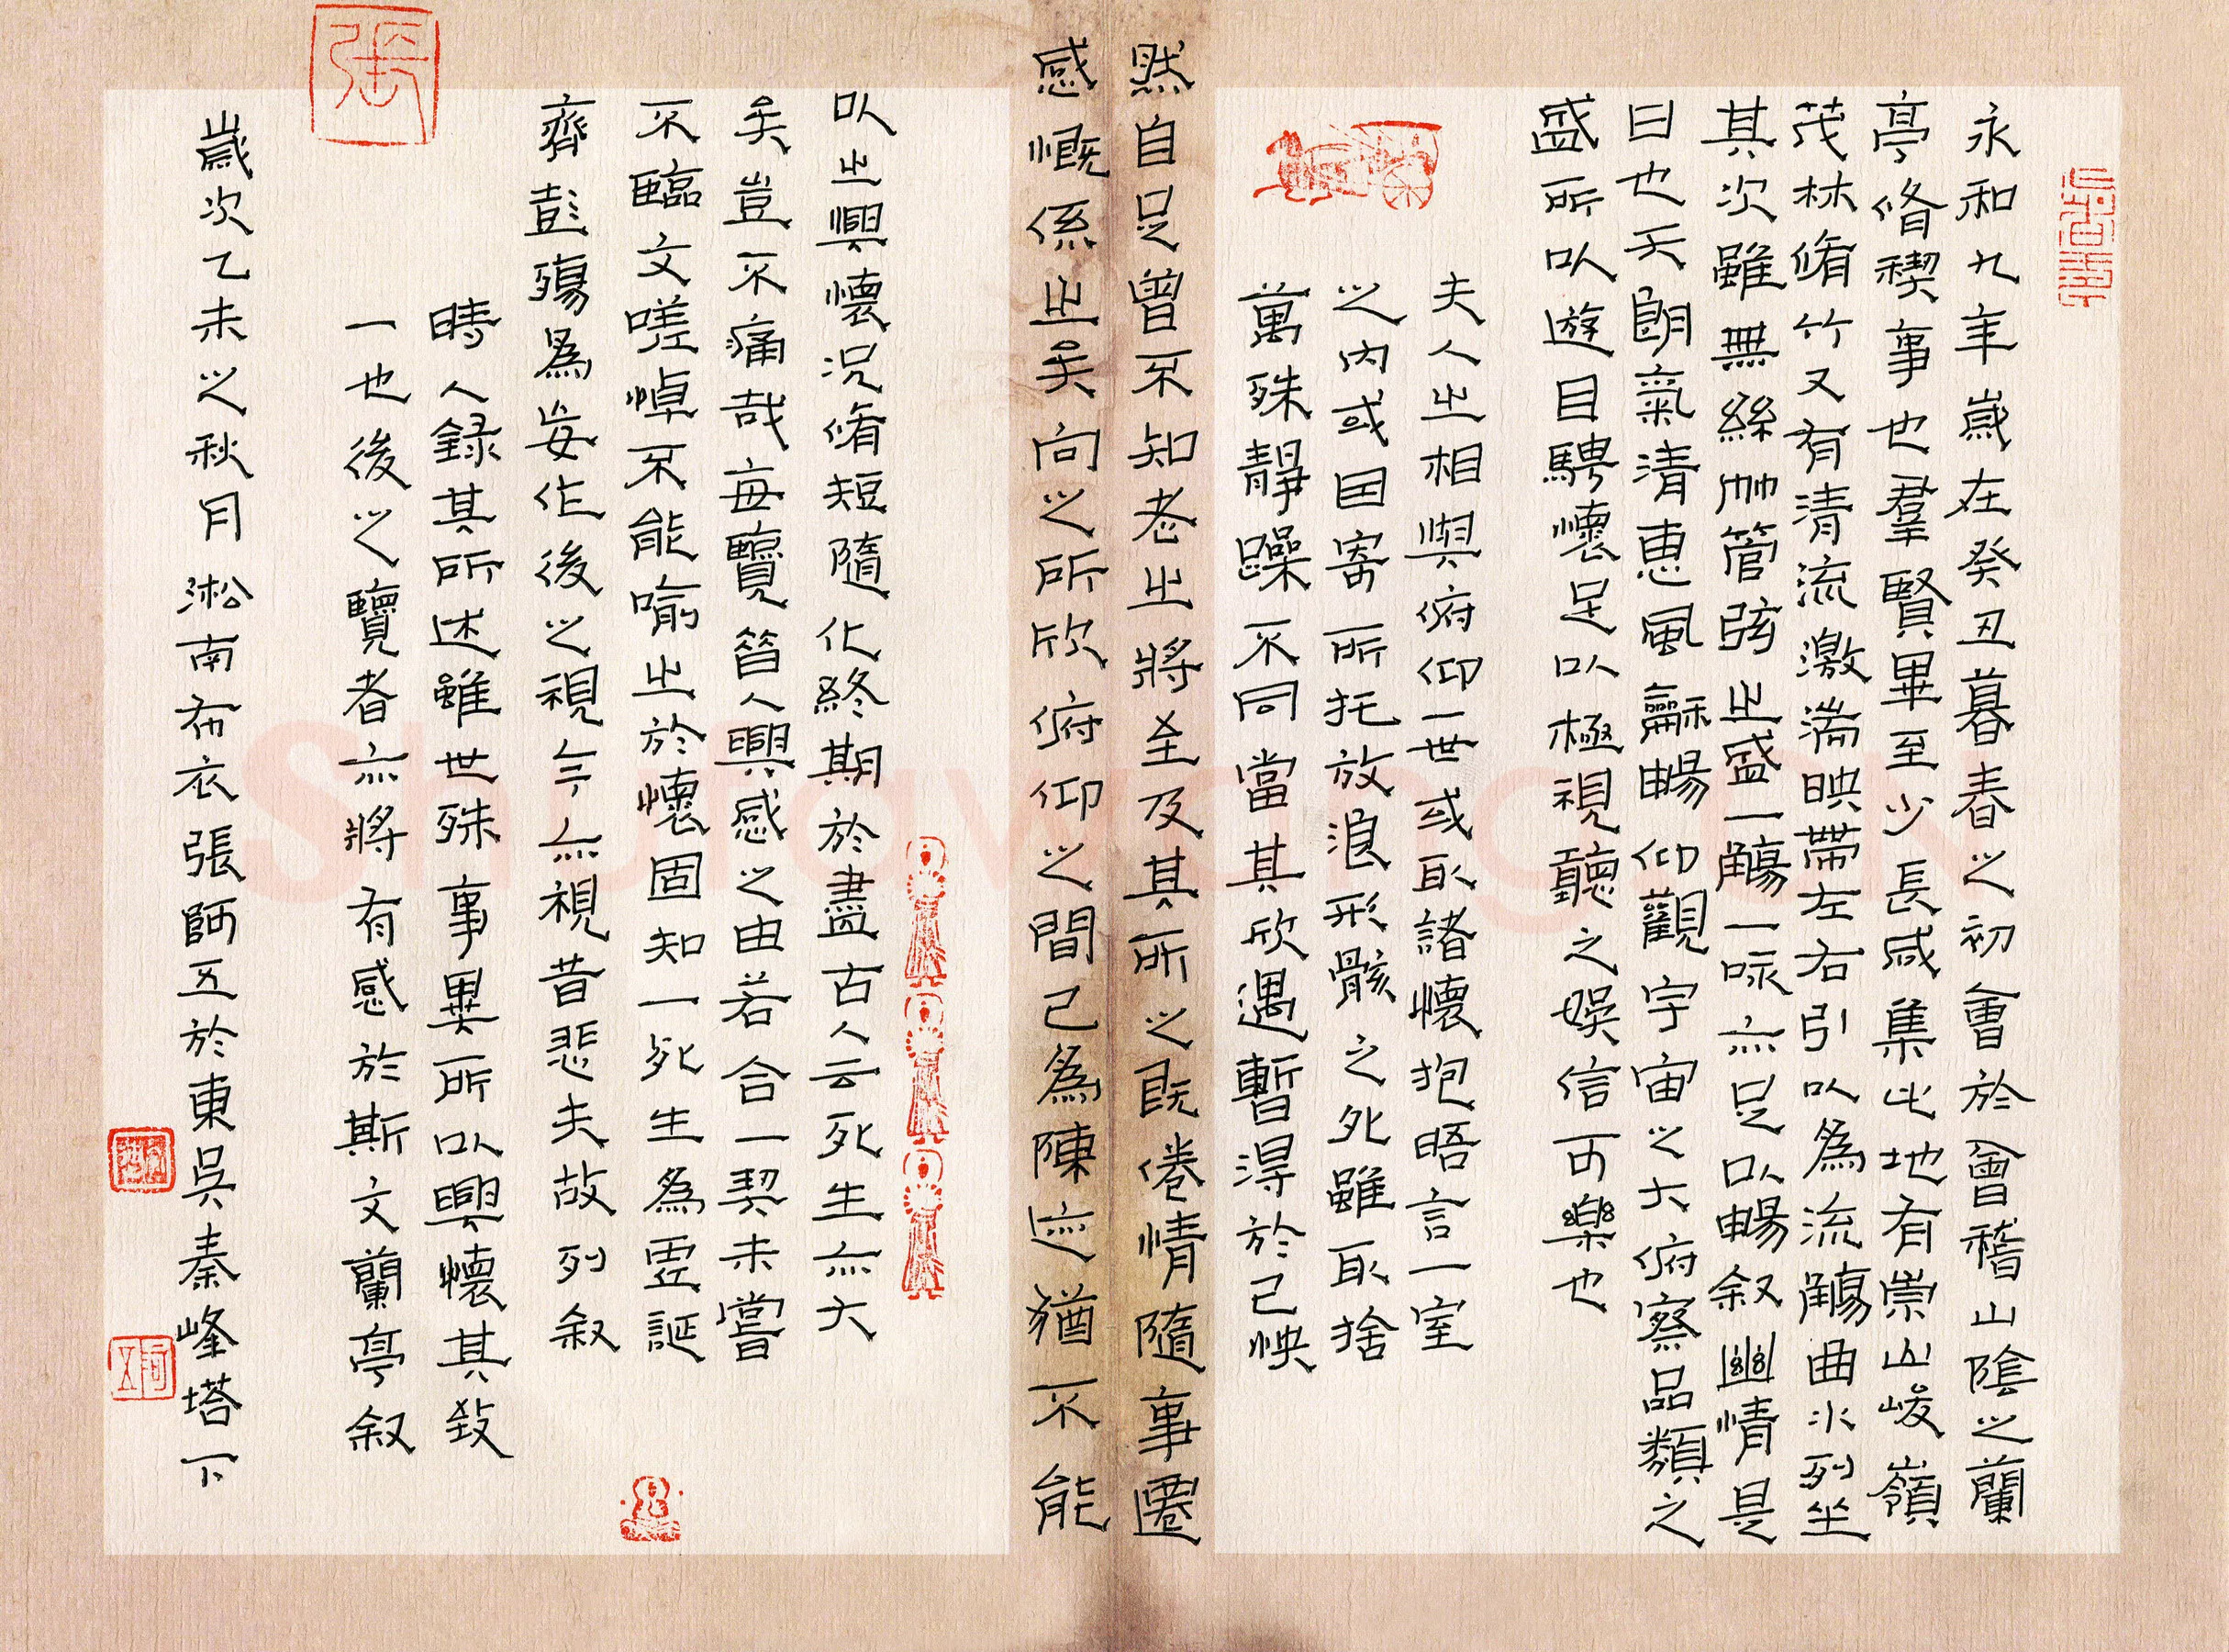 永和九年歲在癸丑暮春之初會於會稽山陰之蘭
亭脩禊事也羣賢畢至少長咸集此地有崇山峻嶺
茂林脩竹又有清流激湍映帶左右引以為流觴曲水列坐
其次雖無絲竹管弦之盛一觴一咏亦足以暢叙幽情是
日也天朗氣清惠風龢暢仰觀宇宙之大俯察品類之
盛所以遊目騁懷足以極視聽之娛信可樂也
夫人之相與俯仰一世或取諸懷抱晤言一室
之內或因寄所托放浪形骸之外雖取捨
萬殊靜躁不同當其欣遇暫得於己怏
然自足曾不知老之將至及其所之既倦情隨事遷
感慨係之矣向之所欣俯仰之間已為陳迹猶不能
以之興懷況脩短隨化終期於盡古人云死生亦大
矣豈不痛哉每覽昔人興感之由若合一契未嘗
不臨文嗟悼不能喻之於懷固知一死生為虛誕
齊彭殤為妄作後之視今亦視昔悲夫故列叙
時人録其所述雖世殊事異所以興懷其致
一也後之覽者亦將有感於斯文蘭亭叙
歲次乙未之秋月淞南布衣張師五於東吳秦峰塔下
張